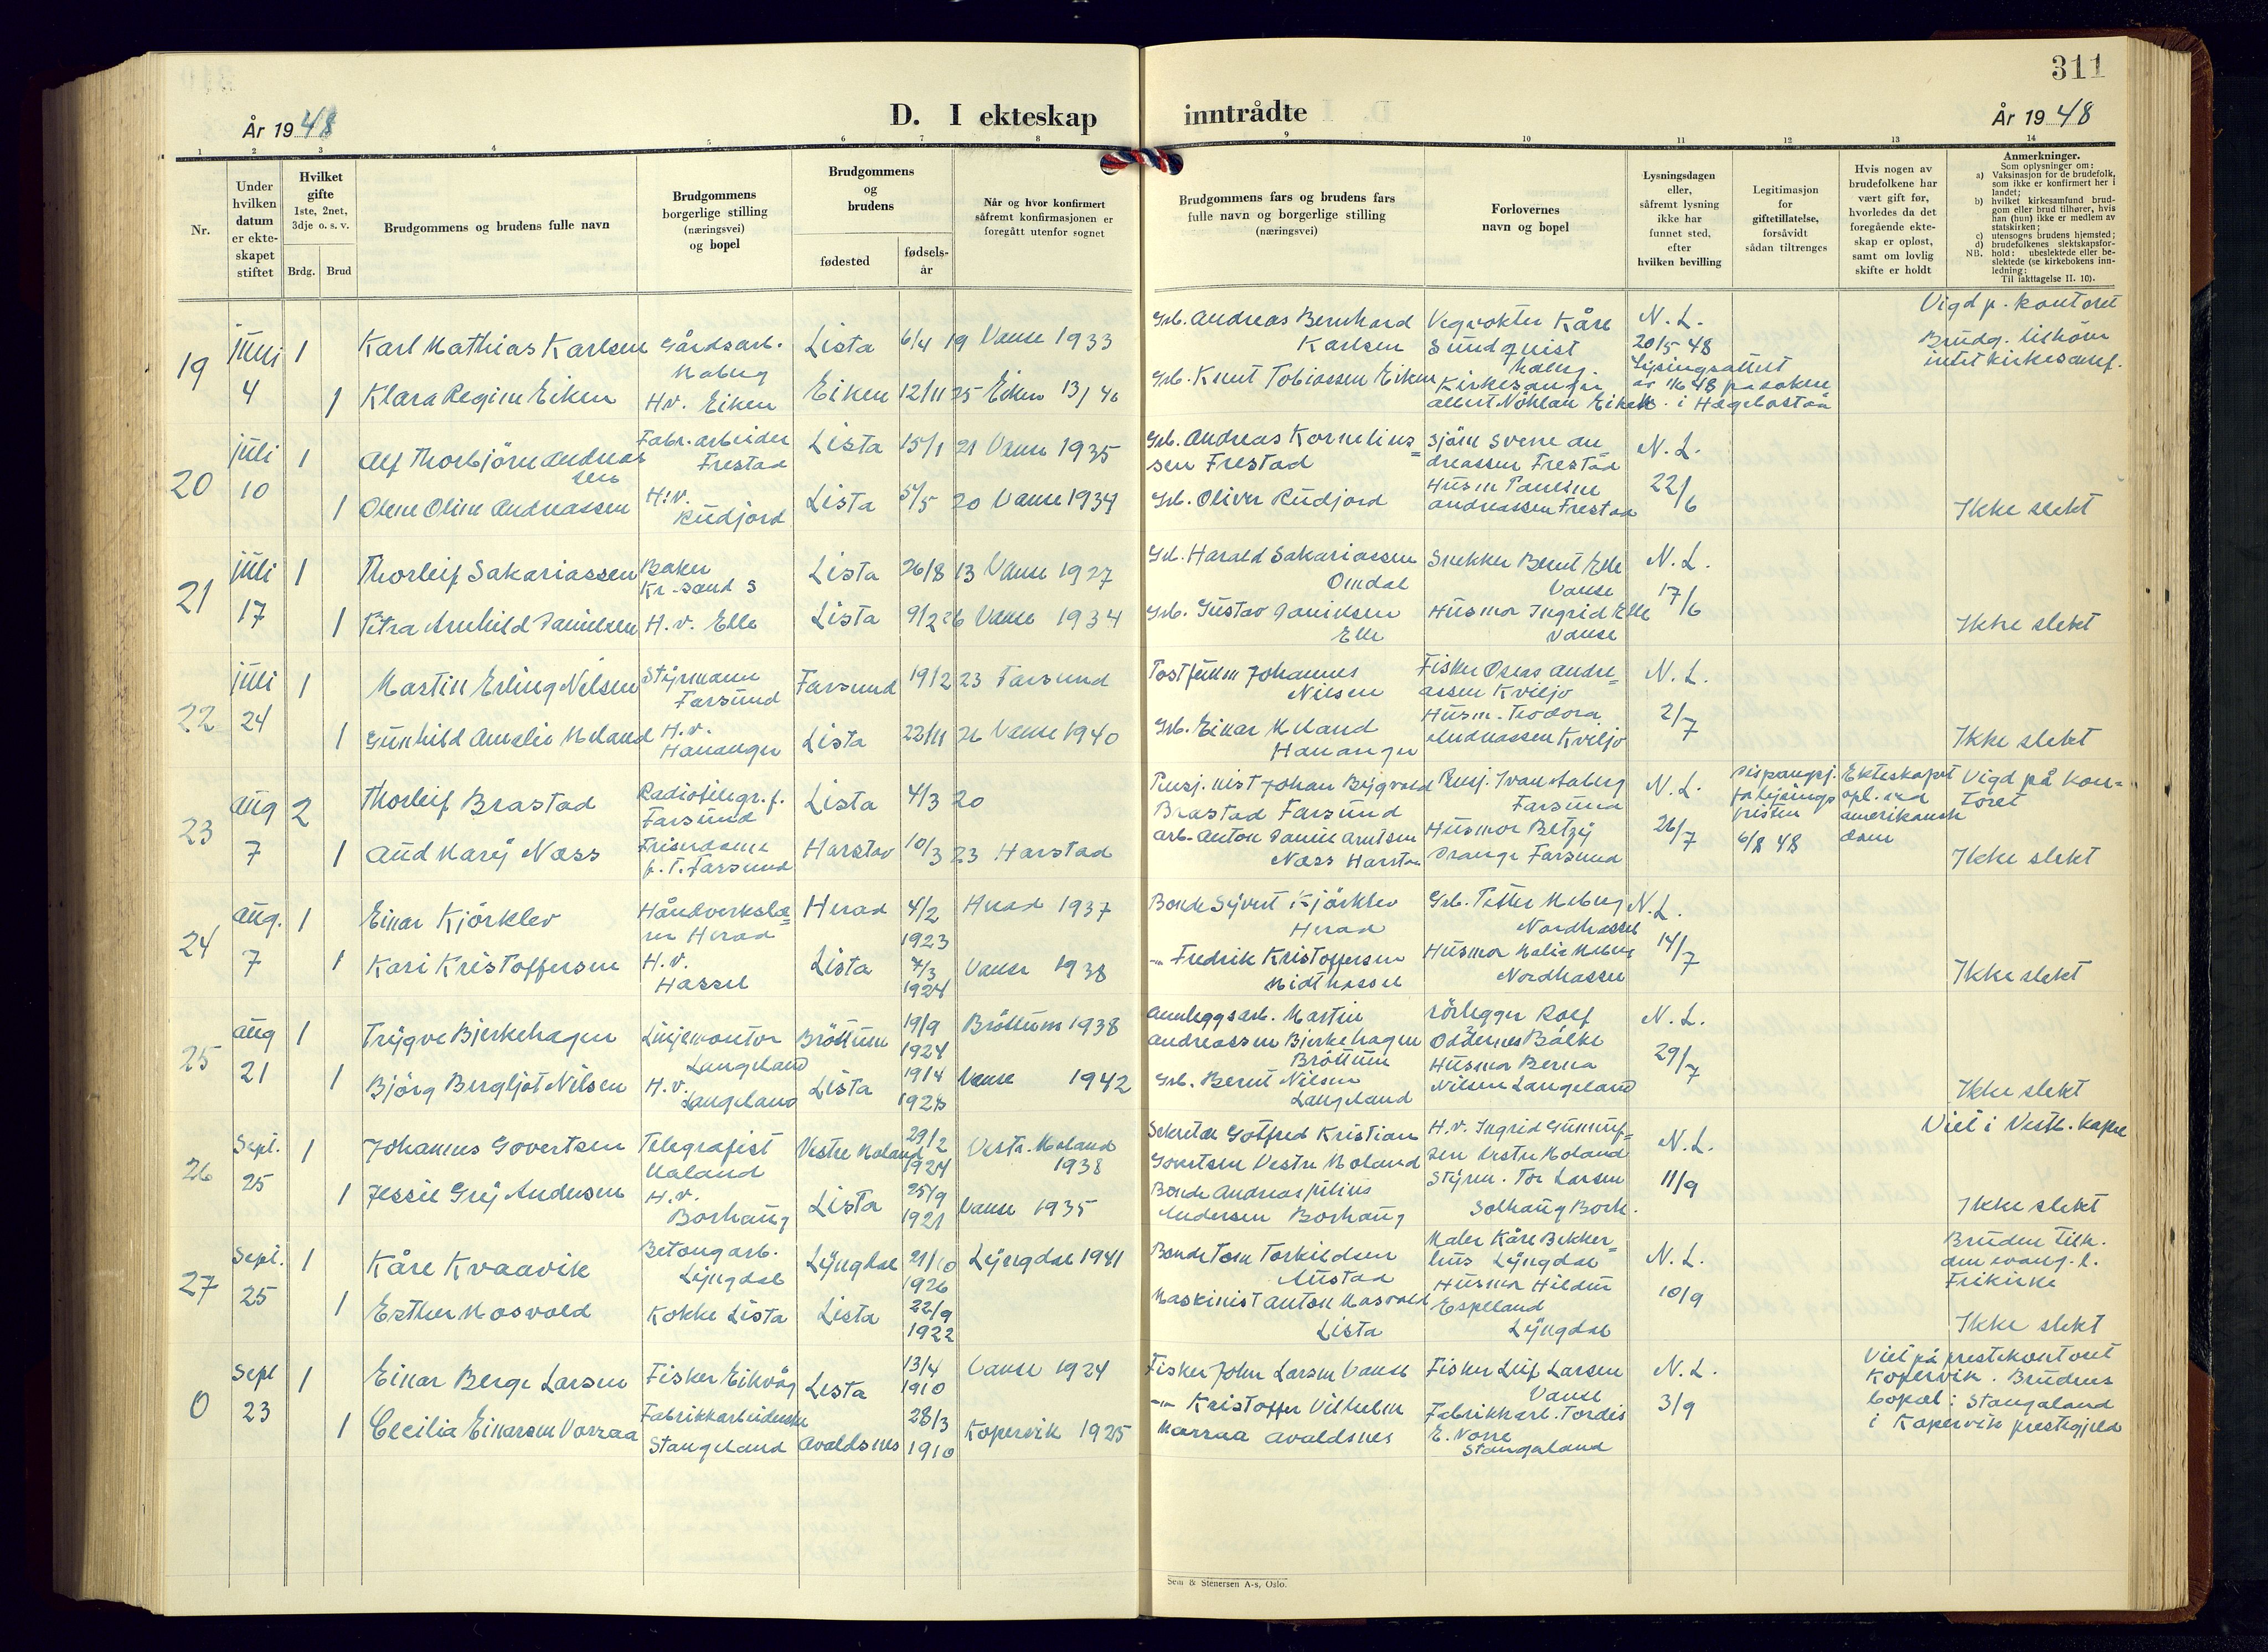 311
År 1948
D. I ekteskap inntrådte
År 1948
1 2 3 4 5 6 7 8 9 10 11 12 13 14
Nr.
Under
hvilken
datum
er ekte-
skapet
stiftet
Hvilket
gifte
1ste, 2net,
3dje o. s. v.
Brdg. Brud
Brudgommens og brudens fulle navn
Brudgommens
borgerlige stilling
(næringsvei)
og bopel
Brudgommens
og
brudens
fødested
fødsels-
år
Når og hvor konfirmert
såfremt konfirmasjonen er
foregått utenfor sognet
Brudgommens fars og brudens fars
fulle navn og borgerlige stilling
(næringsvei)
Forlovernes
navn og bopel
Lysningsdagen
eller,
såfremt lysning
ikke har
funnet sted,
efter
hvilken bevilling
Legitimasjon
for
giftetillatelse,
forsåvidt
sådan tiltrenges
Hvis nogen av
brudefolkene har
vært gift før,
hvorledes da det
foregående ekte-
skap er opløst,
samt om lovlig
skifte er holdt
Anmerkninger.
Som oplysninger om:
a) Vaksinasjon for de brudefolk,
som ikke er konfirmert her i
landet;
b) hvilket kirkesamfund brud-
gom eller brud tilhører, hvis
han (hun) ikke er medlem av
statskirken;
c) utensogns brudens hjemsted;
d) brudefolkenes slektskapsfor-
hold: ubeslektede eller be-
slektede (se kirkebokens inn-
ledning:
NB. Til iakttagelse II. 10).
19
juli
4
1
Karl Mathias Karlsen
Gårdsarb.
Lista 6/4 19 Vanse 1933
Grb. Andreas Bernhard
Karlsen
Vegvokter Kåre
Sundquist
N. L.
20/5 48
Vigd p. kontoret
Brudg. tilhører
intet kirkesamf.
1
Klara Regine Eiken
H.v. Eiken
Eiken 12/11 25 Eiken 13/ 40
Grb. Knut Tobiassen Eiken
Kirkesanger
20
juli
10
1
Alf Thorbjörn Andreas
sen
Fabr. arbeider
Frestad
Lista 15/1 21 Vanse 1935
Grb. Andreas Kornelius=
sen Frestad
Sjöm Sverre An
dreassen Frestad
N. L.
22/6
1
Olene Oline Andreassen
H.v.
Rudjord
Lista 5/5 20 Vanse 1934
Grb. Oliver Rudjord
Husm Pauline
Andreassen Frestad
Ikke slekt
21
juli
17
1
Thorleif Sakariassen
Baker
Kr.sand S
Lista 26/8 13 Vanse 1927
Grb. Harald Sakariassen
Omdal
Snekker Bernt Elle
Vanse
N. L.
17/6
1
Petra Arnhild Danielsen
H.v. Elle
Lista 9/2 26 Vanse 1934
Grb. Gustav Danielsen
Elle
Husmor Ingrid Elle
Vanse
Ikke slekt
22
juli
24
1
Martin Erling Nilsen
Styrmann
Farsund
Farsund 19/2 23 Farsund
Postfullm Johannes
Nilsen
Fisker Oseas Andre=
assen Kviljo
N. L.
2/7
1
Gunhild Amalie Meland
H.v.
Hananger
Lista 22/11 26 Vanse 1940
Grb. Einar Meland
Hananger
Husm. Teodora
Andreassen Kviljo
Ikke slekt
23
aug
7
2
Thorleif Brastad
Radiotelegr. f.
Farsund
Lista 4/3 20
Pensj. nist Johan Bergvald
Brastad Farsund
Pensj. Ivan Aaberg
Farsund
N. L.
26/7
6/8 48
Ekteskapet
opl. ved
amerikansk
dom
Vigd på kon=
toret
1
Aud Mary Næss
Friserdame
p. t. Farsund
Harstad 10/3 23 Harstad
Arb. Anton Daniel Arntsen
Næss Harstad
Husmor Betzy
Prange Farsund
Ikke slekt
24
aug.
7
1
Einar Kjörklev
Håndverkslæ=
rer Herad
Herad 4/2 1923 Herad 1937
Bonde Syvert Kjörklev
Herad
Grb. Petter Meberg
Nordhassel
N. L.
14/7
1
Kari Kristoffersen
H.v.
Hassel
Lista 7/3 1924 Vanse 1938
-"- Fredrik Kristoffersen
Midthassel
Husmor Malie Meberg
Nordhassel
Ikke slekt
25
aug
21
1
Trygve Bjerkehagen
Linjemontör
Langeland
Bröttum 19/9 1924 Bröttum 1938
Anleggsarb. Martin
Andreassen Bjerkehagen
Bröttum
Rörlegger Rolf
Oddernes Bålke
N. L.
29/7
1
Björg Bergljot Nilsen
H.v.
Langeland
Lista 19/4 Vanse 1942
Grb. Bernt Nilsen
Langeland
Husmor Berna
Nilsen Langeland
Ikke slekt
26
Sept.
25
1
Johannes Govertsen
Telegrafist
Maland
Vestre Moland 29/2 1924 Vestre Moland
1938
Sekretær Gotfred Kristian
Govertsen Vestre Moland
H.v. Ingrid Gunnuf=
sen Vestre Moland
N. L.
11/9
Viet i Vestb. kapel
1
Jessie Grej Andersen
H.v.
Borhaug
Lista 25/9 1921 Vanse 1935
Bonde Andreas Julius
Andersen Borhaug
Styrm. Tor Larsen
Solhaug Borh.
Ikke slekt
27
Sept.
25
1
Kåre Kvaavik
Betongarb.
Lyngdal
Lyngdal 21/10 1926 Lyngdal 1941
Bonde Tom Torkildsen
Austad
Maler Kåre Bekker=
hus Lyngdal
N. L.
10/9
Bruden tilh.
den evang. l.
Frikirke
1
Esther Mosvold
Kokke Lista
Lista 22/9 1922
Maskinist Anton Mosvold
Lista
Husmor Hildur
Espeland
Lyngdal
Ikke slekt
0
Sept
23
1
Einar Berge Larsen
Fisker Eikvåg
Lista 13/4 1910 Vanse 1924
Fisker John Larsen Vanse
Fisker Leif Larsen
Vanse
N. L.
3/9
Viet på prestekontoret
Kopervik. Brudens
bopel: Stangaland
i Kopervik prestegjeld
1
Cecilia Einarsen Vorraa
Fabrikkarbeiderske
Stangeland
Avaldsnes 28/3 1910 Kopervik 1925
-"- Kristoffer Vilhelm
Avaldsnes
Fabrikkarb. Tordis
E. Vorre
Stangaland
Sem & Stenersen A-s, Oslo.